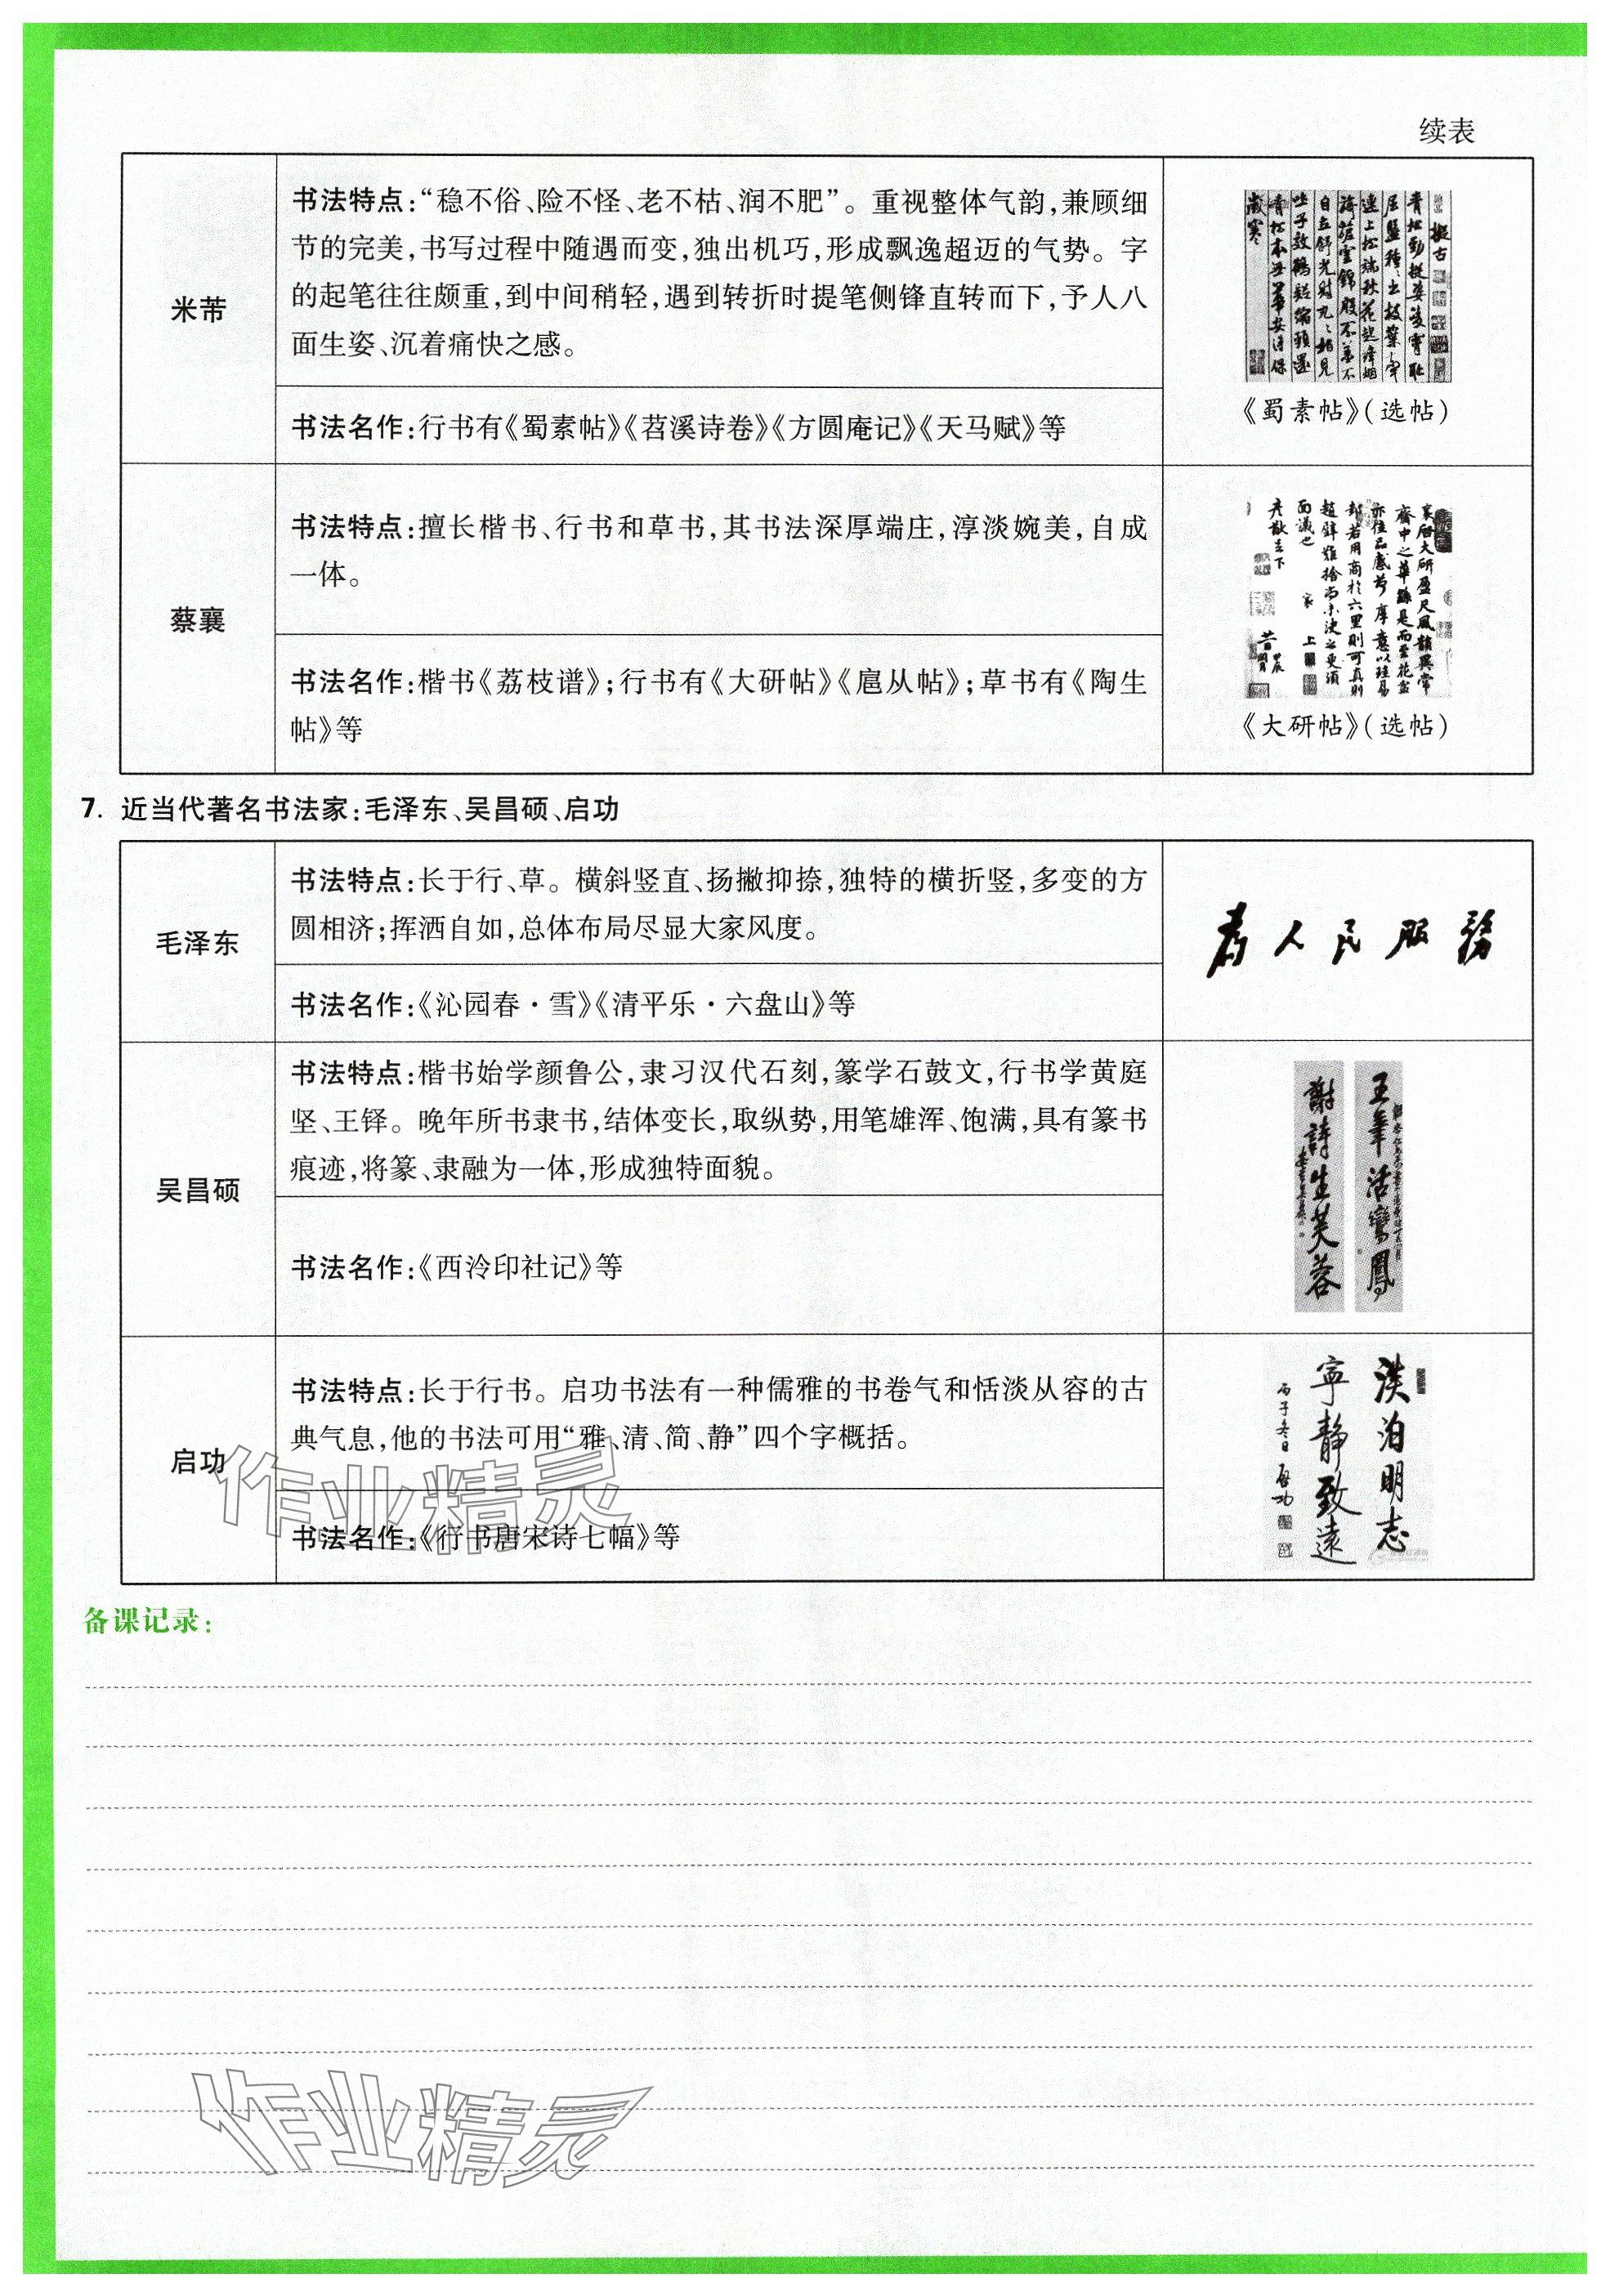 续表
米芾
书法特点：“稳不俗、险不怪、老不枯、润不肥”。重视整体气韵，兼顾细
节的完美，书写过程中随遇而变，独出机巧，形成飘逸超迈的气势。字
的起笔往往颇重，到中间稍轻，遇到转折时提笔侧锋直转而下，予人八
面生姿、沉着痛快之感。
书法名作：行书有《蜀素帖》《苕溪诗卷》《方圆庵记》《天马赋》等
《蜀素帖》（选帖）
蔡襄
书法特点：擅长楷书、行书和草书，其书法深厚端庄，淳淡婉美，自成
一体。
书法名作：楷书《荔枝谱》；行书有《大研帖》《扈从帖》；草书有《陶生
帖》等
《大研帖》（选帖）
7. 近当代著名书法家：毛泽东、吴昌硕、启功
毛泽东
书法特点：长于行、草。横斜竖直、扬撇抑捺，独特的横折竖，多变的方
圆相济；挥洒自如，总体布局尽显大家风度。
书法名作：《沁园春·雪》《清平乐·六盘山》等
为人民服務
吴昌硕
书法特点：楷书始学颜鲁公，隶习汉代石刻，篆学石鼓文，行书学黄庭
坚、王铎。晚年所书隶书，结体变长，取纵势，用笔雄浑、饱满，具有篆书
痕迹，将篆、隶融为一体，形成独特面貌。
书法名作：《西泠印社记》等
王筆活鸞鳳
謝詩生芙蓉
启功
书法特点：长于行书。启功书法有一种儒雅的书卷气和恬淡从容的古
典气息，他的书法可用“雅、清、简、静”四个字概括。
书法名作：《行书唐宋诗七幅》等
淡泊明志
寧靜致遠
丙子冬日 启功
作业精灵
备课记录：
作业精灵